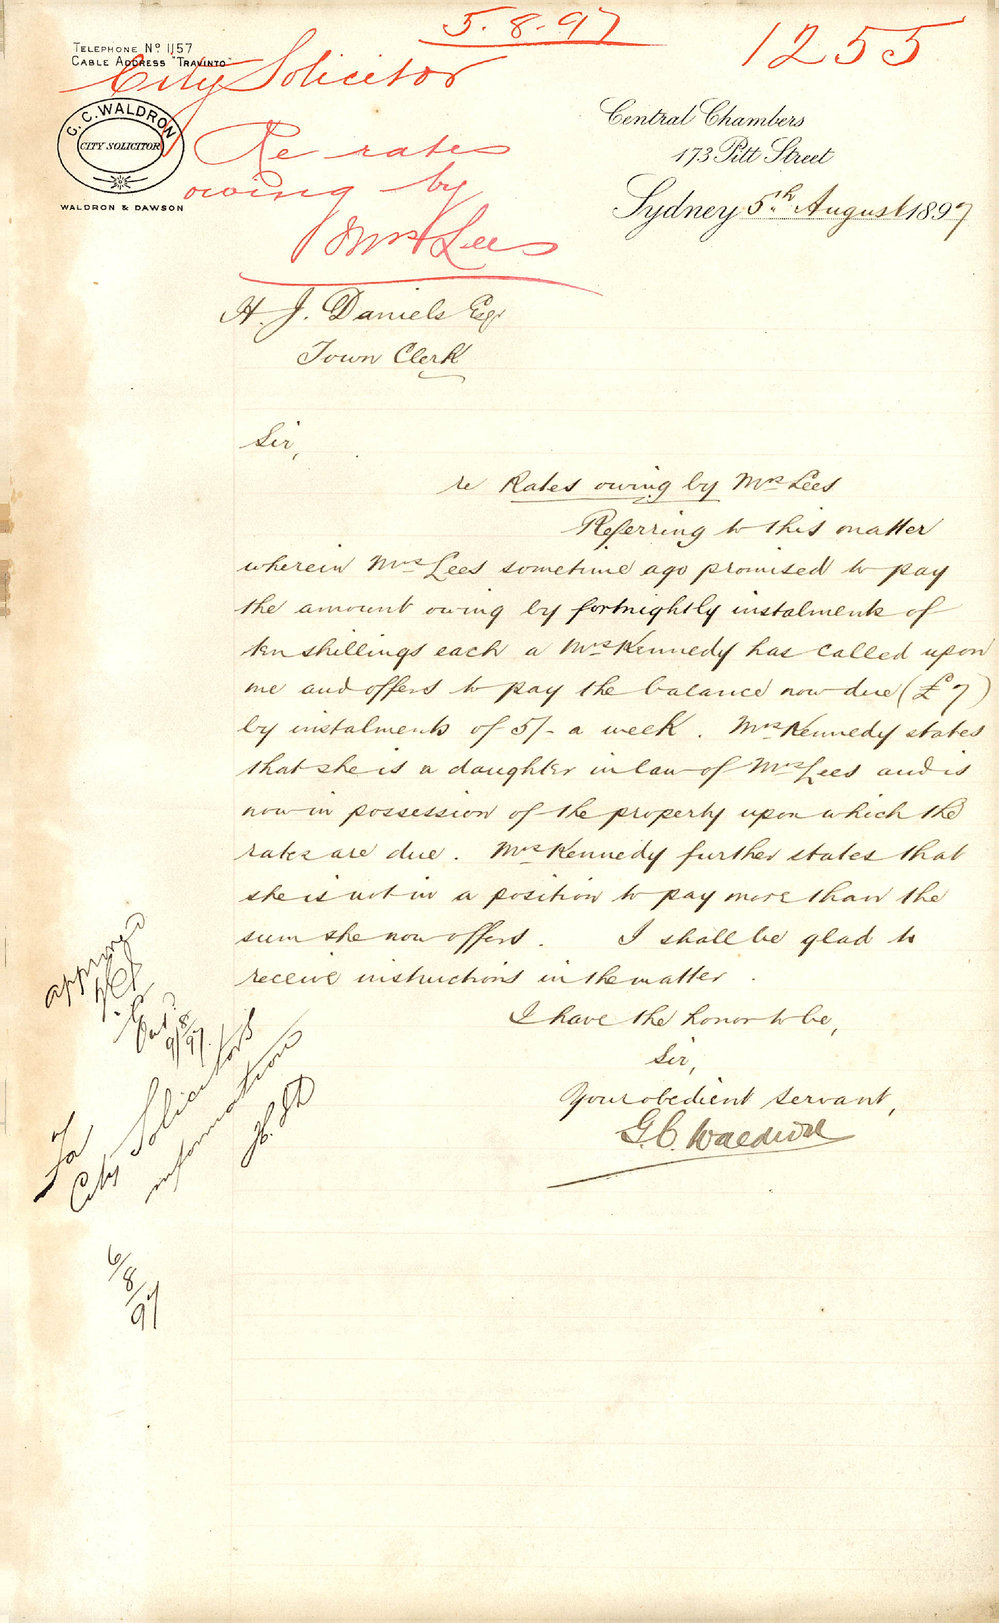 5.8.97
1255
TELEPHONE No 1157
CABLE ADDRESS "TRAVINTO"
City Solicitor
G. C. WALDRON
CITY SOLICITOR
WALDRON & DAWSON
Re rates
owing by
Mrs Lees
Central Chambers
173 Pitt Street
Sydney 5th August 1897
H. J. Daniels Esqr
Town Clerk
Sir,
re Rates owing by Mrs Lees
Referring to this matter
wherein Mrs Lees sometime ago promised to pay
the amount owing by fortnightly instalments of
ten shillings each a Mrs Kennedy has called upon
me and offers to pay the balance now due (£7)
by instalments of 5/- a week. Mrs Kennedy states
that she is a daughter in law of Mrs Lees and is
now in possession of the property upon which the
rates are due. Mrs Kennedy further states that
she is not in a position to pay more than the
sum she now offers. I shall be glad to
receive instructions in the matter.
I have the honor to be,
Sir,
Your obedient servant,
G.C. Waldron
approved
9/8/97.
For
City Solicitor's
information
6/8/97